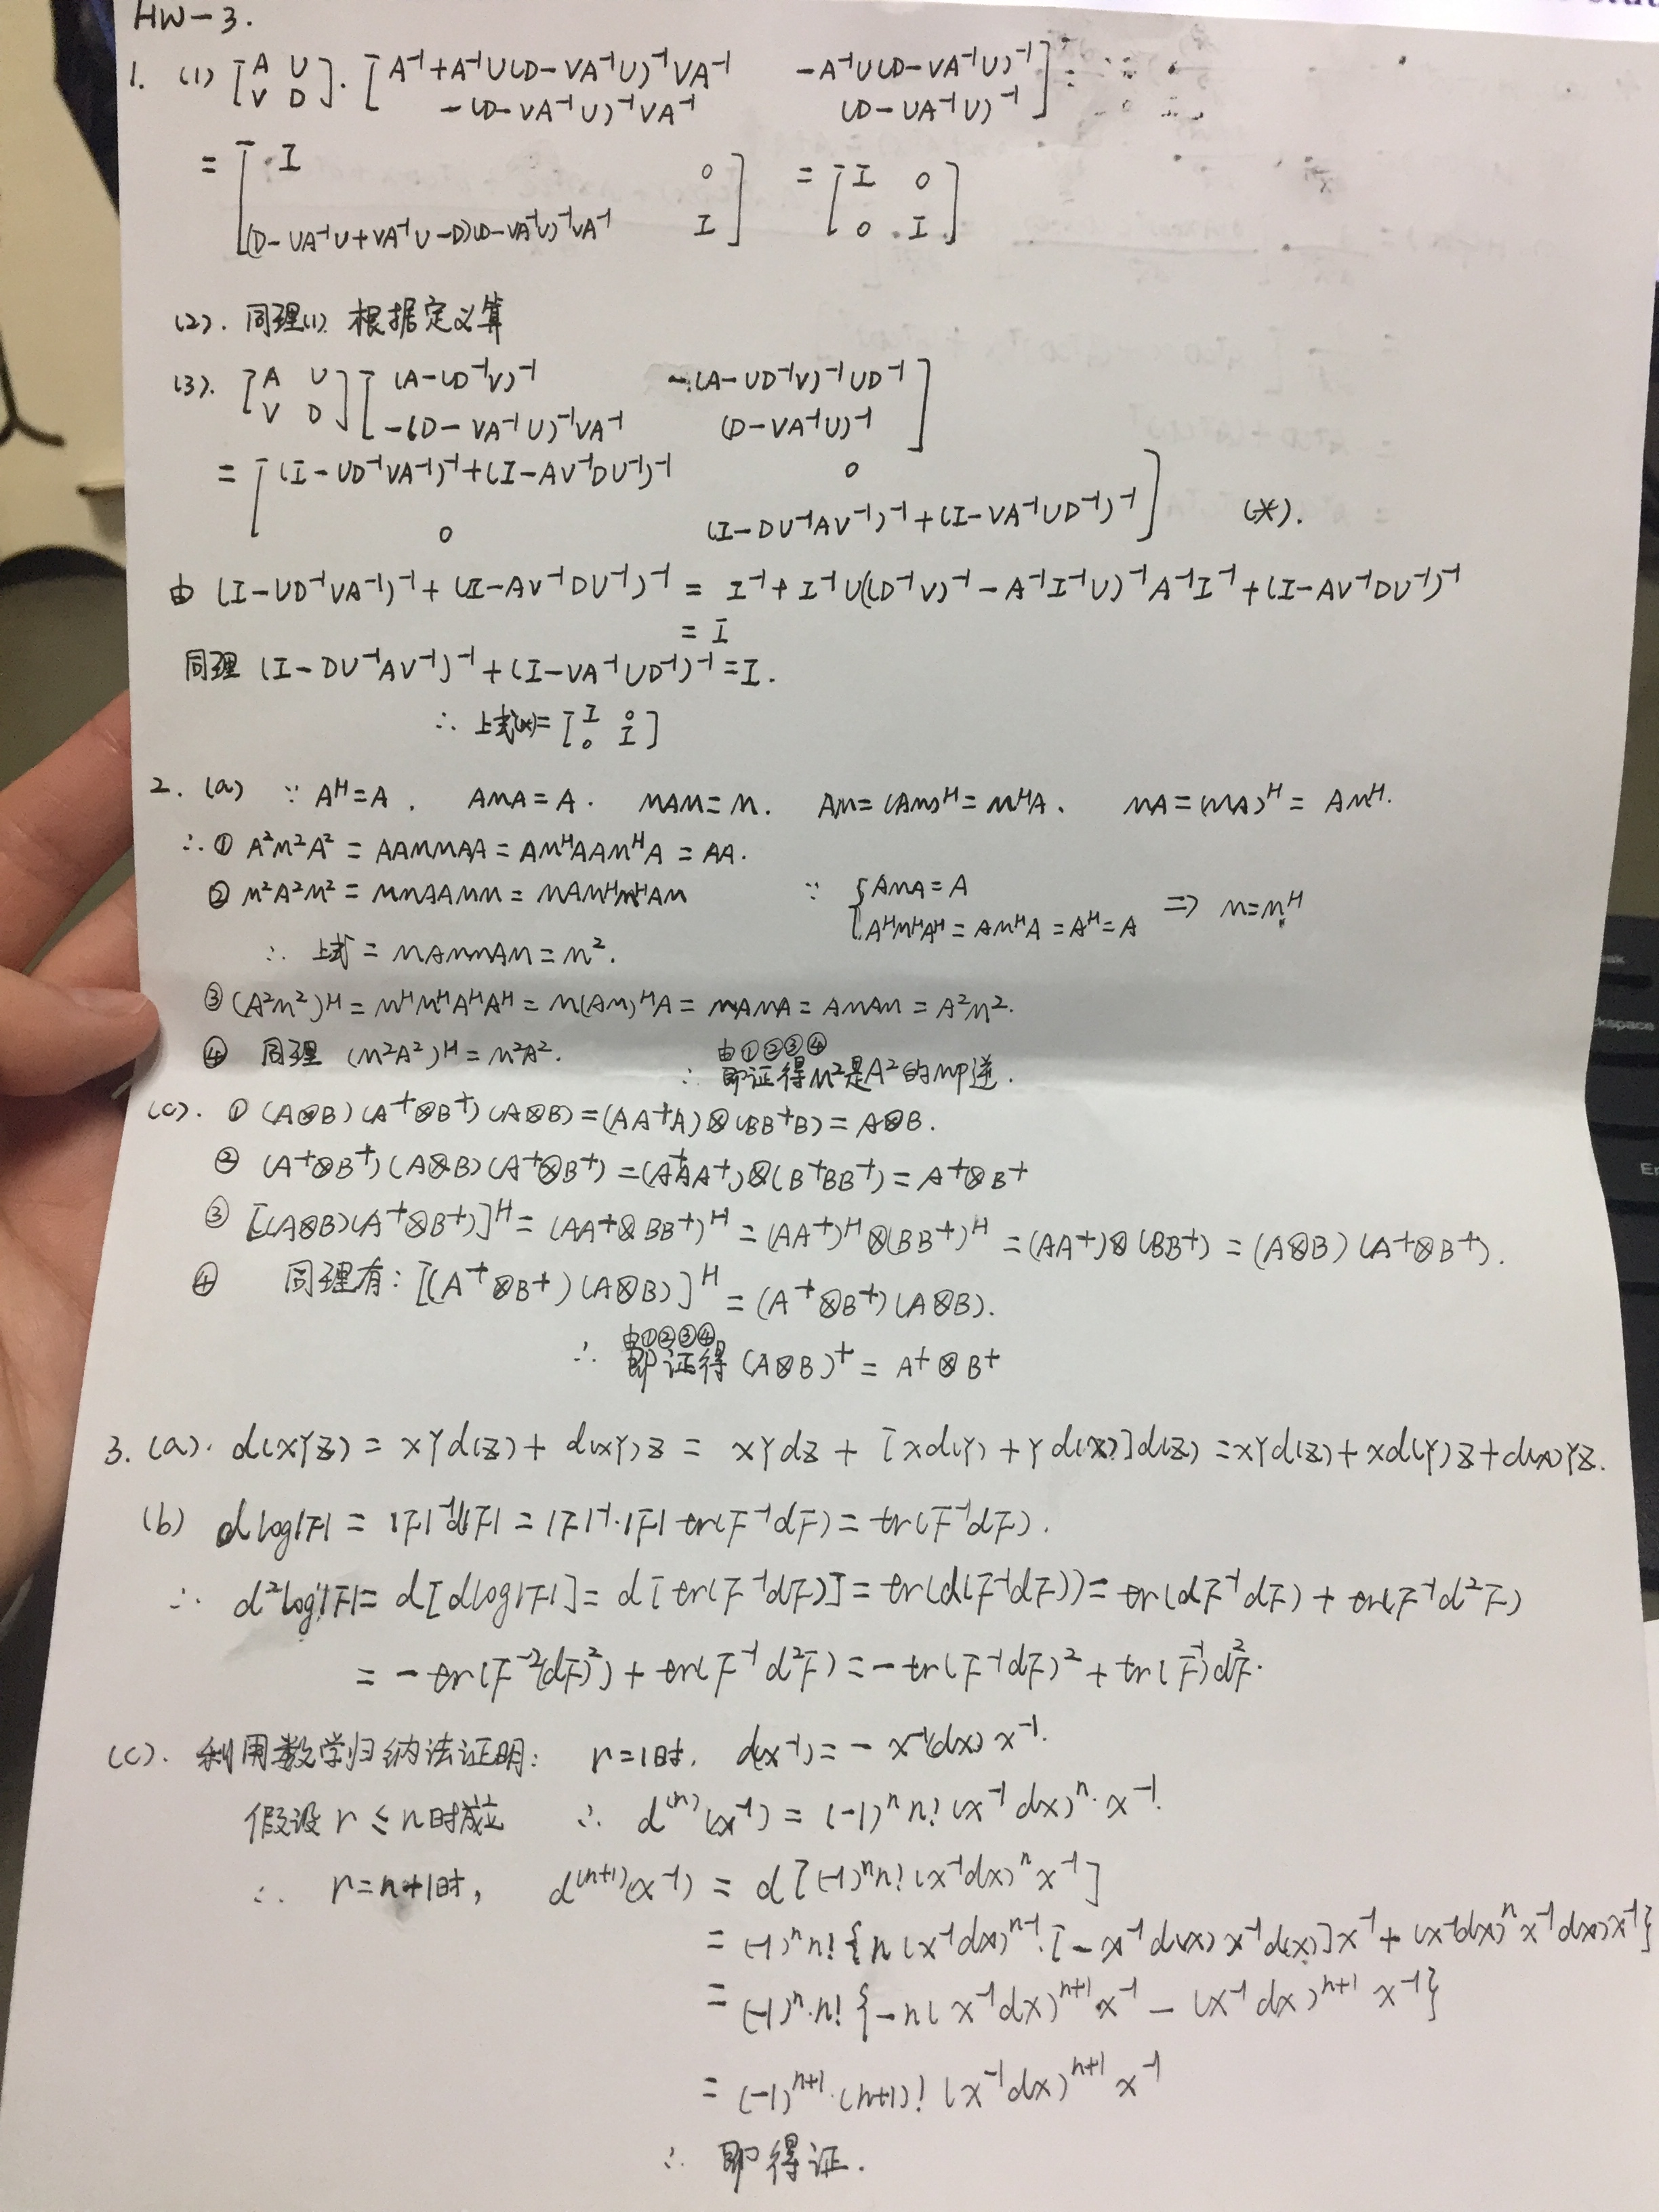 HW-3.
1. (1) [A U; V D]·[A⁻¹+A⁻¹U(D-VA⁻¹U)⁻¹VA⁻¹ -A⁻¹U(D-VA⁻¹U)⁻¹; -(D-VA⁻¹U)⁻¹VA⁻¹ (D-UA⁻¹U)⁻¹] =
= [I 0; (D-UA⁻¹U+VA⁻¹U-D)(D-VA⁻¹U)⁻¹VA⁻¹ I] = [I 0; 0 I]
(2). 同理(1) 根据定义算
(3). [A U; V D][(A-UD⁻¹V)⁻¹ -(A-UD⁻¹V)⁻¹UD⁻¹; -(D-VA⁻¹U)⁻¹VA⁻¹ (D-VA⁻¹U)⁻¹]
= [(I-UD⁻¹VA⁻¹)⁻¹+(I-AV⁻¹DU⁻¹)⁻¹ 0; 0 (I-DU⁻¹AV⁻¹)⁻¹+(I-VA⁻¹UD⁻¹)⁻¹] (*).
由 (I-UD⁻¹VA⁻¹)⁻¹+(I-AV⁻¹DU⁻¹)⁻¹ = I⁻¹+I⁻¹U((D⁻¹V)⁻¹-A⁻¹I⁻¹U)⁻¹A⁻¹I⁻¹+(I-AV⁻¹DU⁻¹)⁻¹
= I
同理 (I-DU⁻¹AV⁻¹)⁻¹+(I-VA⁻¹UD⁻¹)⁻¹=I.
∴ 上式(*)=[I 0; 0 I]
2. (a) ∵ Aᴴ=A. AMA=A. MAM=M. AM=(AM)ᴴ=MᴴA. MA=(MA)ᴴ=AMᴴ.
∴ ① A²M²A² = AAMMAA = AMᴴAAMᴴA = AA.
② M²A²M² = MMAAMM = MAMᴴMᴴAM ∵ {AMA=A; AᴴMᴴAᴴ=AMᴴA=Aᴴ=A ⇒ M=Mᴴ
∴ 上式 = MAMMAM = M².
③ (A²M²)ᴴ = MᴴMᴴAᴴAᴴ = M(AM)ᴴA = MAMA = AMAM = A²M².
④ 同理 (M²A²)ᴴ = M²A². ∴ 由①②③④即证得M²是A²的MP逆.
(c). ① (A⊗B)(A⁺⊗B⁺)(A⊗B)=(AA⁺A)⊗(BB⁺B)=A⊗B.
② (A⁺⊗B⁺)(A⊗B)(A⁺⊗B⁺)=(A⁺AA⁺)⊗(B⁺BB⁺)=A⁺⊗B⁺
③ [(A⊗B)(A⁺⊗B⁺)]ᴴ=(AA⁺⊗BB⁺)ᴴ=(AA⁺)ᴴ⊗(BB⁺)ᴴ=(AA⁺)⊗(BB⁺)=(A⊗B)(A⁺⊗B⁺).
④ 同理有: [(A⁺⊗B⁺)(A⊗B)]ᴴ=(A⁺⊗B⁺)(A⊗B).
∴ 由①②③④即证得 (A⊗B)⁺ = A⁺⊗B⁺
3. (a). d(XYZ) = XYd(Z)+d(XY)Z = XYdZ+[Xd(Y)+Yd(X)]d(Z) = XYd(Z)+Xd(Y)Z+d(X)YZ.
(b) dlog|F| = |F|⁻¹d|F| = |F|⁻¹·|F| tr(F⁻¹dF) = tr(F⁻¹dF).
∴ d²log|F| = d[dlog|F|] = d[tr(F⁻¹dF)] = tr(d(F⁻¹dF)) = tr(dF⁻¹dF)+tr(F⁻¹d²F)
= -tr(F⁻²(dF)²)+tr(F⁻¹d²F) = -tr(F⁻¹dF)²+tr(F⁻¹)d²F.
(c). 利用数学归纳法证明: r=1时. d(x⁻¹)=-x⁻¹(dx)x⁻¹.
假设 r≤n时成立 ∴ d⁽ⁿ⁾(x⁻¹) = (-1)ⁿn!(x⁻¹dx)ⁿ·x⁻¹.
∴ r=n+1时, d⁽ⁿ⁺¹⁾(x⁻¹) = d[(-1)ⁿn!(x⁻¹dx)ⁿx⁻¹]
= (-1)ⁿn!{n(x⁻¹dx)ⁿ⁻¹·[-x⁻¹d(x)x⁻¹d(x)]x⁻¹+(x⁻¹dx)ⁿx⁻¹d(x)x⁻¹}
= (-1)ⁿ·n!{-n(x⁻¹dx)ⁿ⁺¹x⁻¹-(x⁻¹dx)ⁿ⁺¹x⁻¹}
= (-1)ⁿ⁺¹·(n+1)!(x⁻¹dx)ⁿ⁺¹x⁻¹
∴ 即得证.